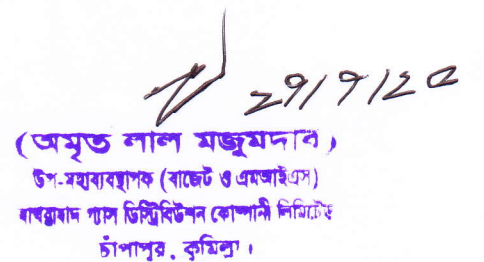 ২৭/৭/২০
(অমৃত লাল মজুমদার)
উপ-মহাব্যবস্থাপক (বাজেট ও এমআইএস)
বাখরাবাদ গ্যাস ডিস্ট্রিবিউশন কোম্পানী লিমিটেড
চাঁপাপুর, কুমিল্লা।